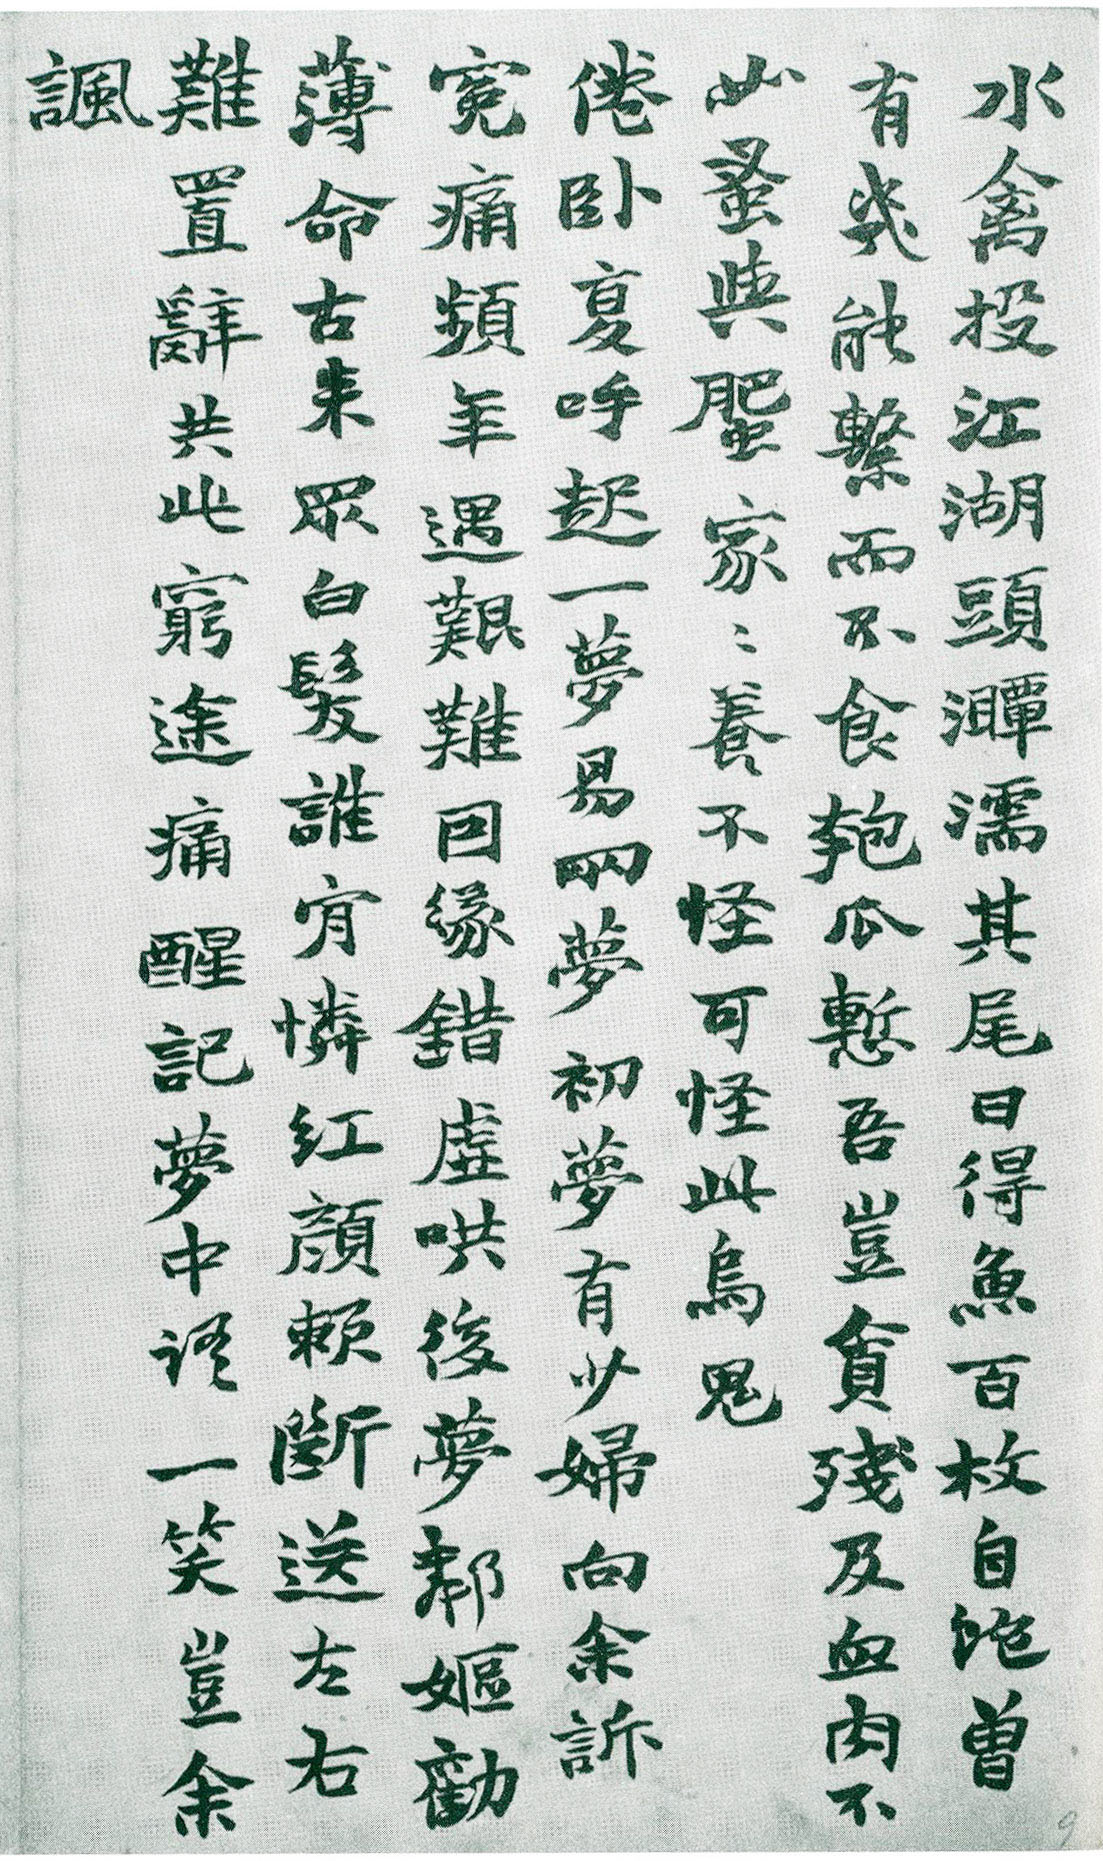 水禽投江湖頭潭濡其尾日得魚百枚自飽曾
有幾能繫而不食匏瓜慙吾豈貪殘及血肉不
必蚤與蜰家〻養不怪可怪此烏鬼
倦卧夏呼起一夢易兩夢初夢有少婦向余訴
冤痛頻年遇艱難回緣錯虛哄後夢鄰嫗勸
薄命古来眾白髮誰肯憐紅顔賴斷送左右
難置辭共此窮途痛醒記夢中語一笑豈余
諷
9